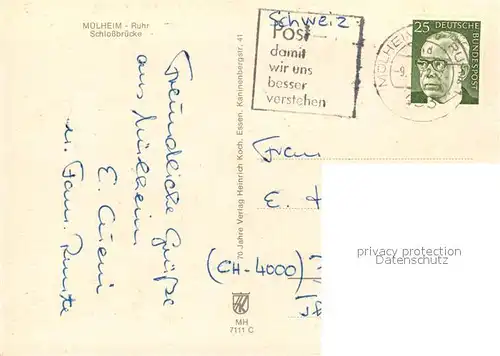 MÜLHEIM - Ruhr
Schloßbrücke
Freundliche Grüße
aus Mülheim
E.
u. Fam.
70 Jahre Verlag Heinrich Koch, Essen, Kaninenbergstr. 41
MH
7111 C
Schweiz
Post
damit
wir uns
besser
verstehen
MÜLHEIM RUHR
25
DEUTSCHE
BUNDESPOST
E.
(CH-4000)
privacy protection
Datenschutz